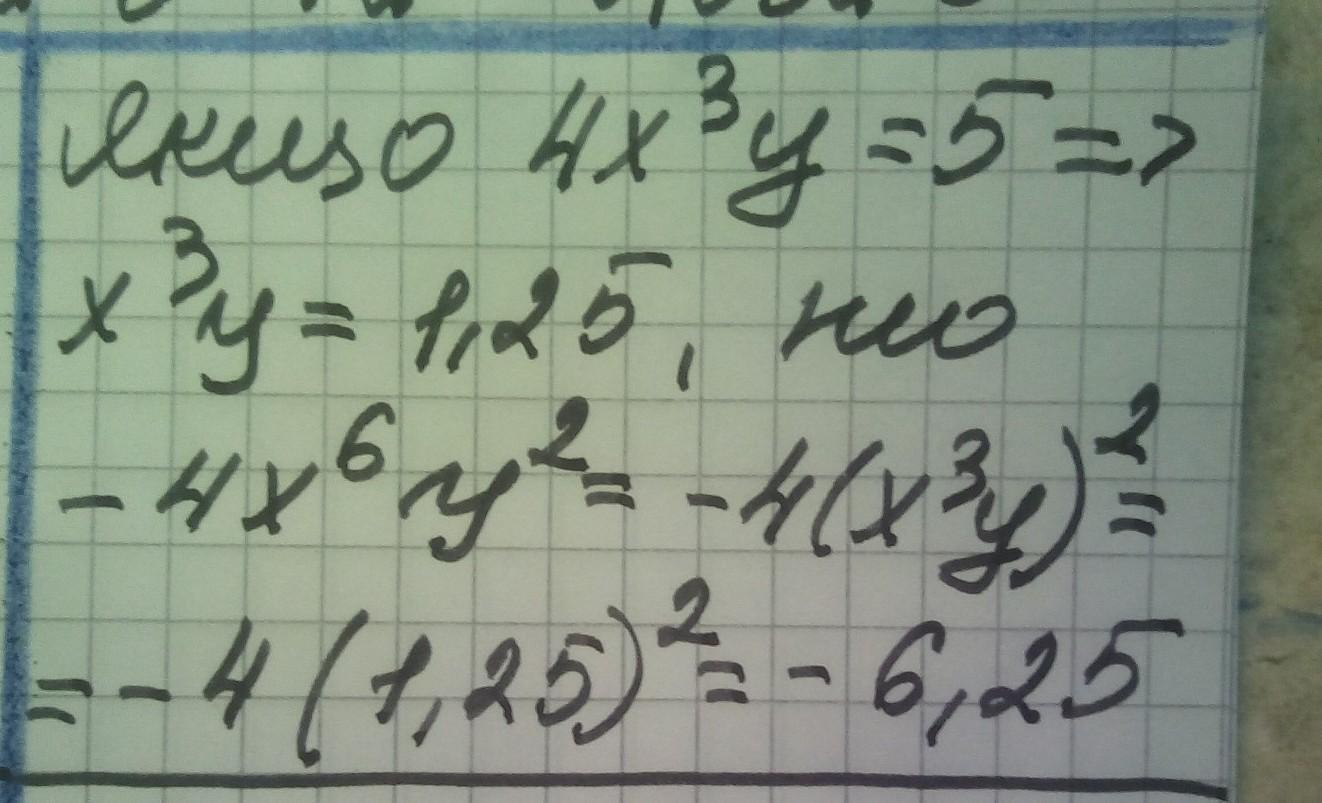 якщо 4x³y = 5 =>
x³y = 1,25, то
- 4x⁶y² = - 4(x³y)² =
= - 4(1,25)² = - 6,25